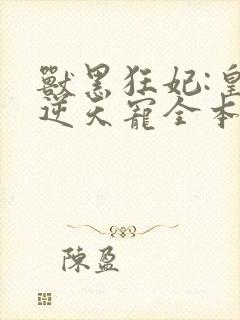 獸黑狂妃:皇
逆天寵全本
陳盈